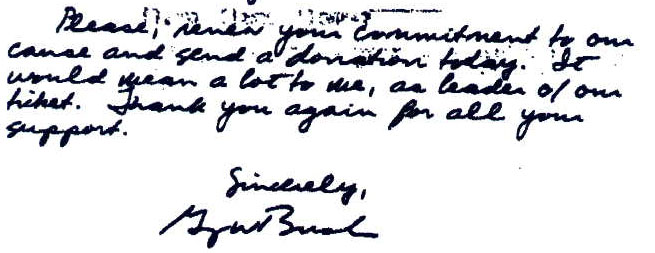 Please, renew your commitment to our
cause and send a donation today. It
would mean a lot to me, as leader of our
ticket. Thank you again for all your
support.
Sincerely,
Bush